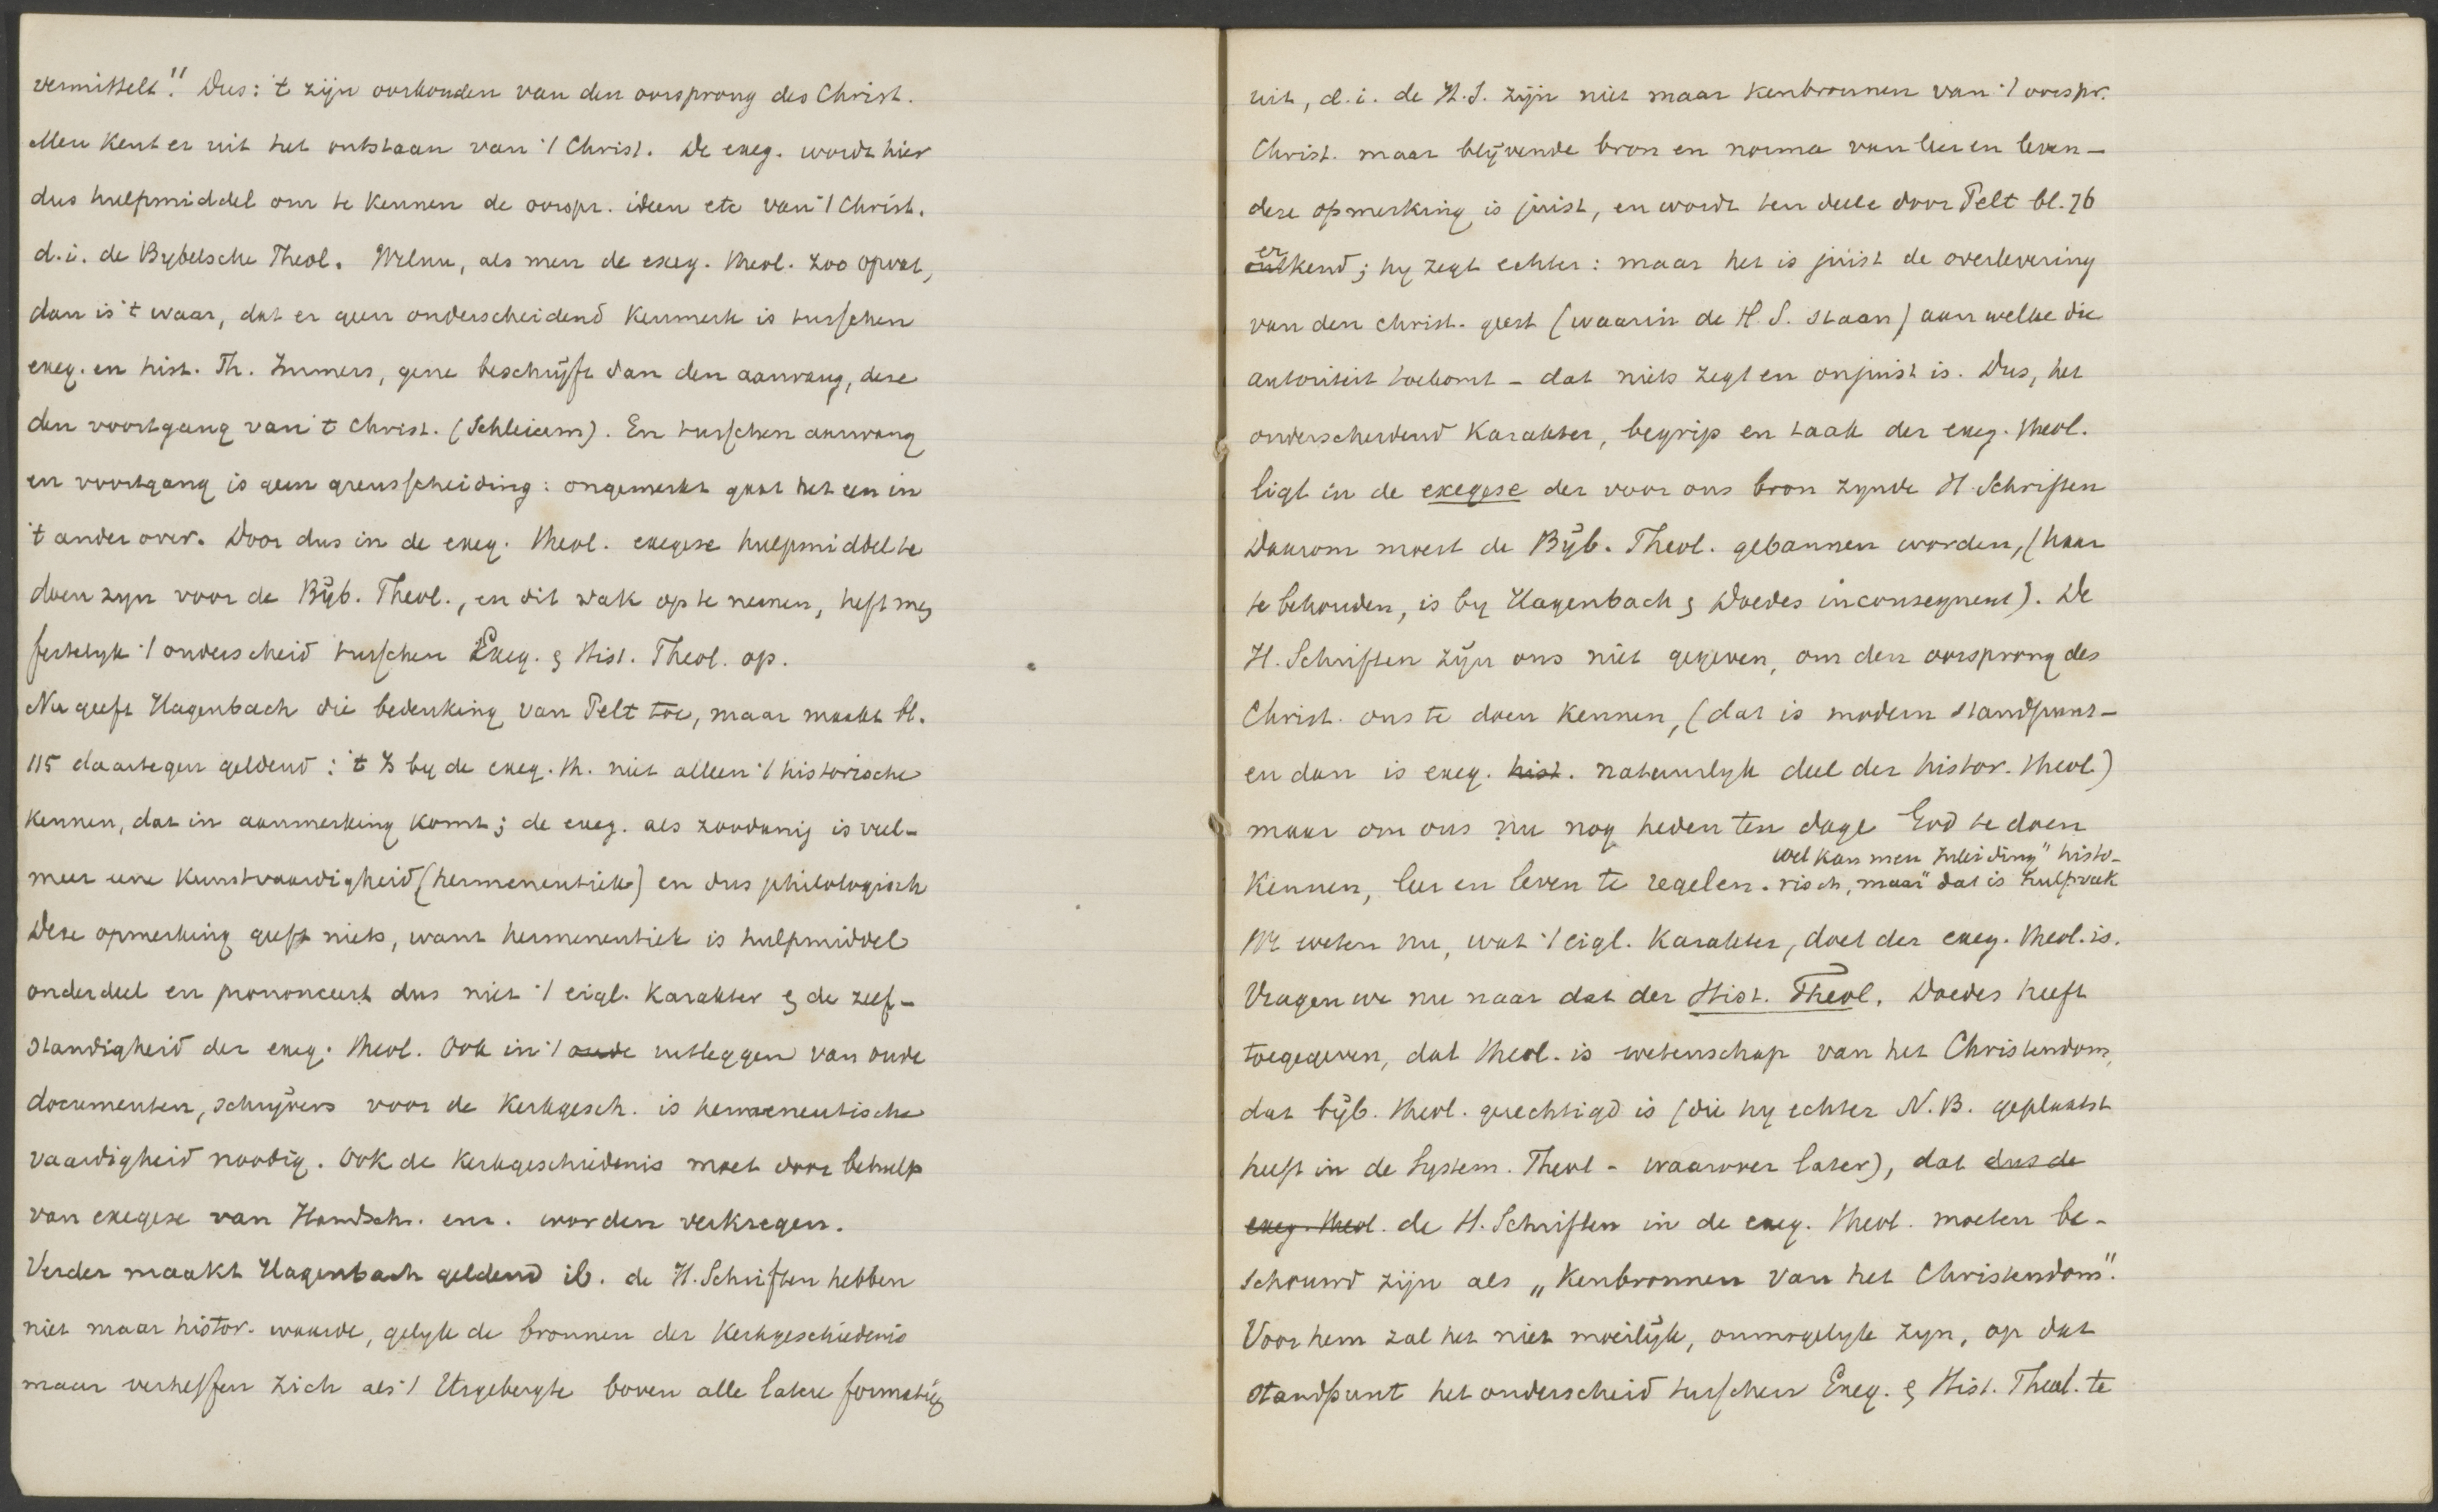 vermittelt." Dus: 't zijn oorkonden van den oorsprong des Christ.
Men kent er uit het ontstaan van 't Christ. De exeg. wordt hier
dus hulpmiddel om te kennen de oorspr. ideen etc van 't Christ.
d.i. de Bybelsche Theol. Welnu, als men de exeg. theol. zoo opvat,
dan is 't waar, dat er geen onderscheidend kenmerk is tusschen
exeg. en hist. Th. Immers, gene beschrijft dan den aanvang, deze
den voortgang van 't Christ. (Schleierm). En tusschen aanvang
en voortgang is geen grensscheiding: ongemerkt gaat het een in
't ander over. Door dus in de exeg. theol. exegese hulpmiddel te
doen zyn voor de Bijb. Theol., en dit vak op te nemen, heft men
feitelyk 't onderscheid tusschen Exeg. & Hist. Theol. op.
Nu geeft Hagenbach die bedenking van Pelt toe, maar maakt bl.
115 daartegen geldend: 't Is by de exeg. th. niet alleen 't historische
kennen, dat in aanmerking komt; de exeg. als zoodanig is veel-
meer eene kunstvaardigheid (hermeneutiek) en dus philologisch
Deze opmerking geeft niets, want hermeneutiek is hulpmiddel
onderdeel en prononceert dus niet 't eigl. karakter & de zelf-
standigheid der exeg. theol. Ook in 't oude uitleggen van oude
documenten, schrijvers voor de kerkgesch. is hermeneutische
vaardigheid noodig. Ook de kerkgeschiedenis moet door behulp
van exegese van Handsch. enz. worden verkregen.
Verder maakt Hagenbach geldend ib. de H. Schriften hebben
niet maar histor. waarde, gelyk de bronnen der Kerkgeschiedenis
maar verheffen zich als 't Urgebergte boven alle latere formatien
uit, d.i. de H.S. zijn niet maar kenbronnen van 't oorspr.
Christ. maar blijvende bron en norma van leer en leven -
deze opmerking is juist, en wordt ten deele door Pelt bl. 76
erkend; hy zegt echter: maar het is juist de overlevering
van den christ. geest (waarin de H. S. staan) aan welke die
autoriteit toekomt - dat niets zegt en onjuist is. Dus, het
onderscheidend karakter, begrip en taak der exeg. theol.
ligt in de exegese der voor ons bron zynde H. Schriften
Daarom moest de Bijb. Theol. gebannen worden, (haar
te behouden, is by Hagenbach & Doedes inconsequent). De
H. Schriften zijn ons niet gegeven, om den oorsprong des
Christ. ons te doen kennen, (dat is modern standpunt -
en dan is exeg. hist. natuurlyk deel der histor. theol.)
maar om ons nu nog heden ten dage God te doen
wel kan men "Inleiding" histo-
kennen, leer en leven te regelen. risch, maar dat is hulpvak
We weten nu, wat 't eigl. karakter, doel der exeg. theol. is.
Vragen we nu naar dat der Hist. Theol. Doedes heeft
toegegeven, dat theol. is wetenschap van het Christendom,
dat bijb. theol. gerechtigd is (die hy echter N.B. geplaatst
heeft in de System. Theol - waarover later), dat dus de
exeg. theol. de H. Schriften in de exeg. theol. moeten be-
schouwd zijn als „Kenbronnen van het Christendom".
Voor hem zal het niet moeilijk, onmogelyk zyn, op dat
standpunt het onderscheid tusschen Exeg. & Hist. Theol. te